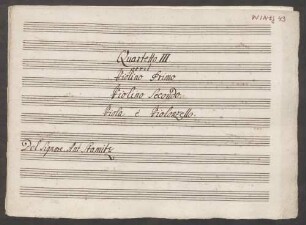 WINTZ 43
Quartetto III
per il
Violino Primo
Violino Secondo.
Viola è Violonzello.
Del Signore Ant Stamitz